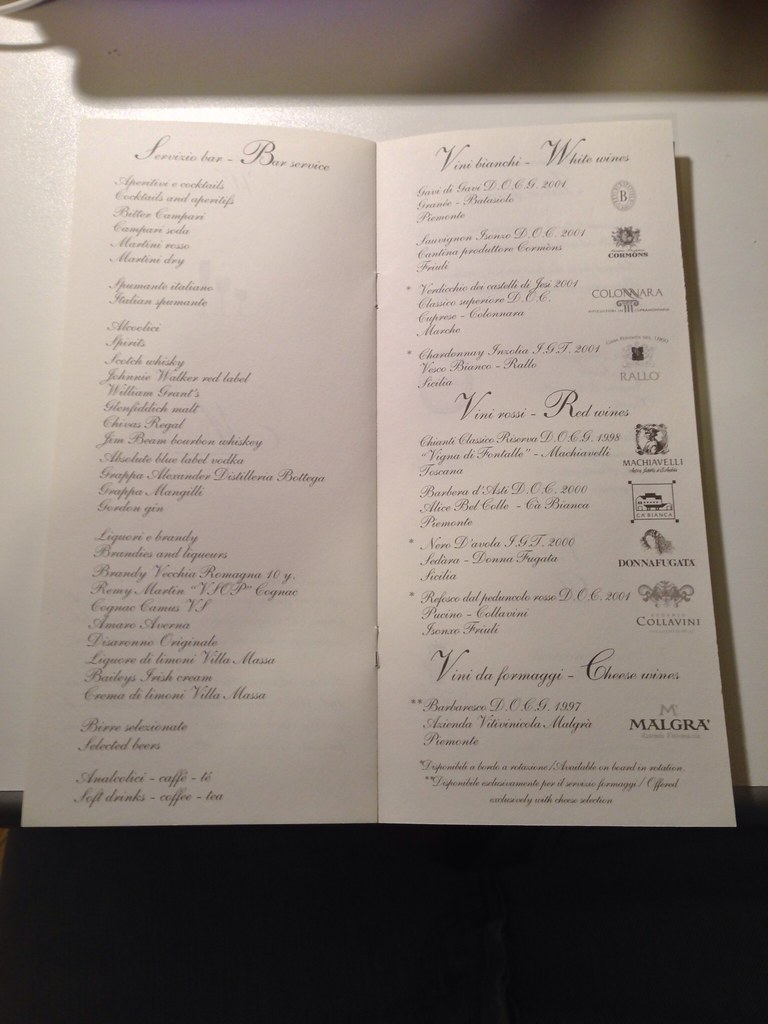 Servizio bar - Bar service
Aperitivi e cocktails
Cocktails and aperitifs
Bitter Campari
Campari soda
Martini rosso
Martini dry
Spumante italiano
Italian spumante
Alcoolici
Spirits
Scotch whisky
Johnnie Walker red label
William Grant's
Glenfiddich malt
Chivas Regal
Jim Beam bourbon whiskey
Absolute blue label vodka
Grappa Alexander Distilleria Bottega
Grappa Mangilli
Gordon gin
Liquori e brandy
Brandies and liqueurs
Brandy Vecchia Romagna 10 y.
Remy Martin "VSOP" Cognac
Cognac Camus VS
Amaro Averna
Disaronno Originale
Liquore di limoni Villa Massa
Baileys Irish cream
Crema di limoni Villa Massa
Birre selezionate
Selected beers
Analcolici - caffè - tè
Soft drinks - coffee - tea
Vini bianchi - White wines
Gavi di Gavi D.O.C.G. 2001
Granée - Batasiolo
Piemonte
B
Sauvignon Isonzo D.O.C. 2001
Cantina produttore Cormòns
Friuli
CORMÒNS
* Verdicchio dei castelli di Jesi 2001
Classico superiore D.O.C.
Cuprese - Colonnara
Marche
COLONNARA
* Chardonnay Inzolia I.G.T. 2001
Vesco Bianco - Rallo
Sicilia
RALLO
Vini rossi - Red wines
Chianti Classico Riserva D.O.C.G. 1998
"Vigna di Fontalle" - Machiavelli
Toscana
MACHIAVELLI
Barbera d'Asti D.O.C. 2000
Alice Bel Colle - Cà Bianca
Piemonte
CÀ BIANCA
* Nero D'avola I.G.T. 2000
Sedàra - Donna Fugata
Sicilia
DONNAFUGATA
* Refosco dal peduncolo rosso D.O.C. 2001
Pucino - Collavini
Isonzo Friuli
COLLAVINI
Vini da formaggi - Cheese wines
** Barbaresco D.O.C.G. 1997
Azienda Vitivinicola Malgrà
Piemonte
M
MALGRA'
Azienda Vitivinicola
*Disponibili a bordo a rotazione / Available on board in rotation
**Disponibile esclusivamente per il servizio formaggi / Offered
exclusively with cheese selection